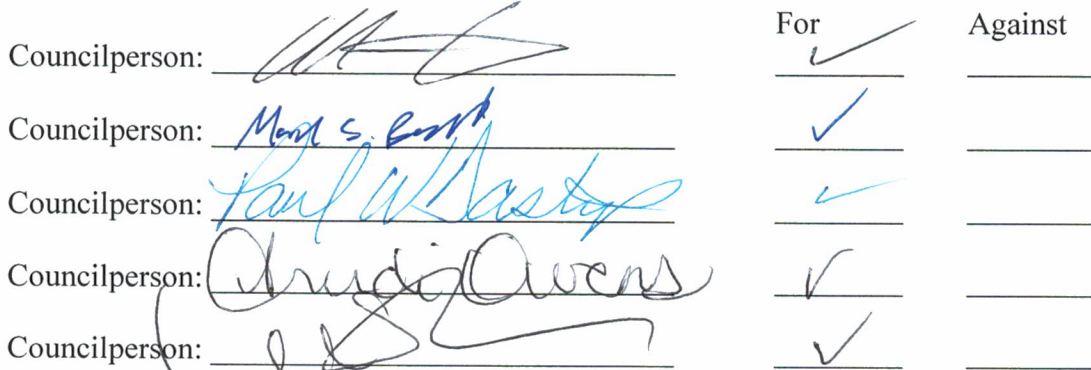 For Against
Councilperson: ✓
Councilperson: Mark S. ✓
Councilperson: Paul W ✓
Councilperson: Owens ✓
Councilperson: ✓